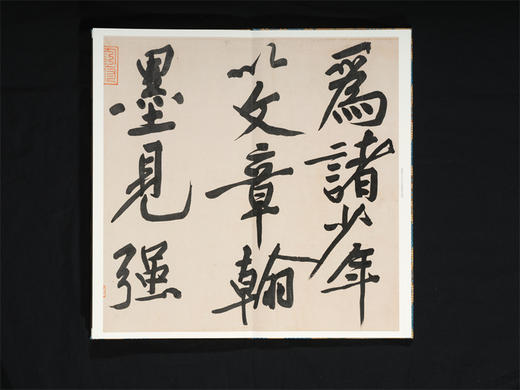 爲諸少年
以文章翰
墨見强